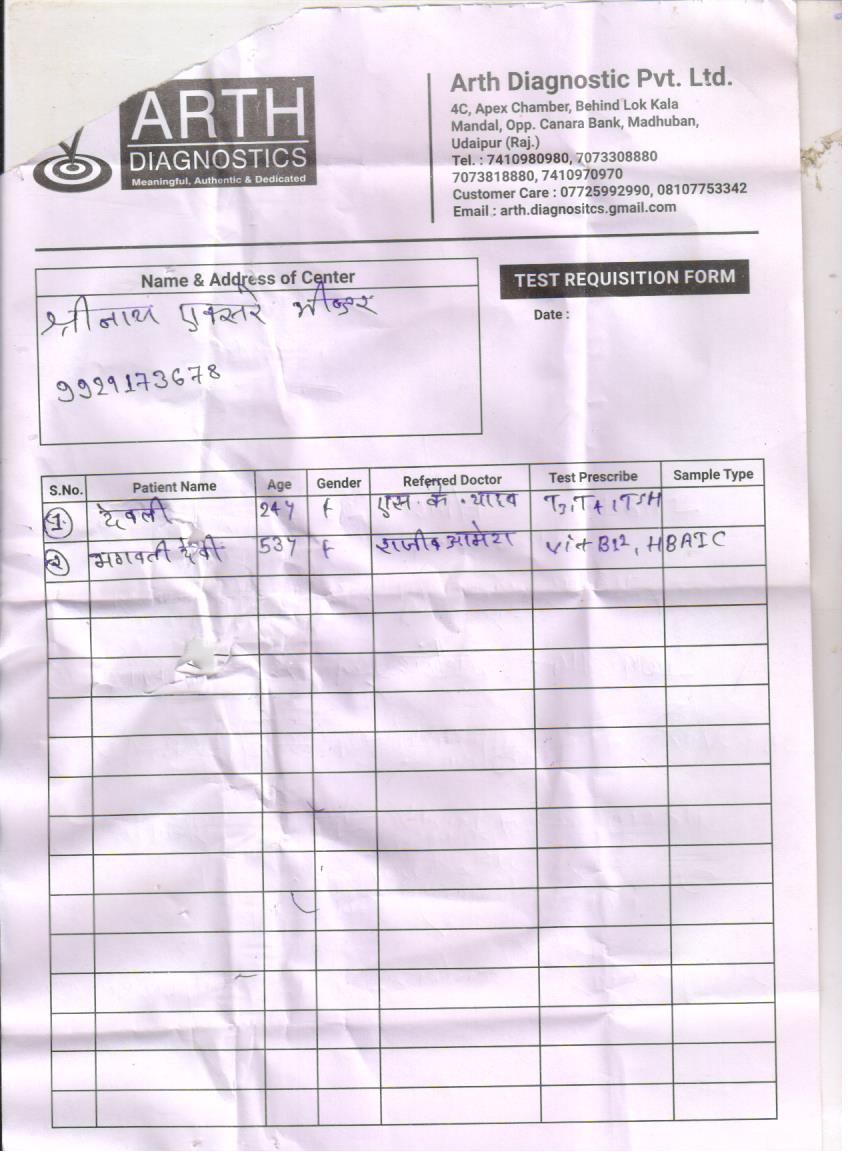 ARTH
DIAGNOSTICS
Meaningful, Authentic & Dedicated
Arth Diagnostic Pvt. Ltd.
4C, Apex Chamber, Behind Lok Kala
Mandal, Opp. Canara Bank, Madhuban,
Udaipur (Raj.)
Tel. : 7410980980, 7073308880
7073818880, 7410970970
Customer Care : 07725992990, 08107753342
Email : arth.diagnositcs.gmail.com
Name & Address of Center
श्रीनाथ एक्सरे भीण्डर
9929173678
TEST REQUISITION FORM
Date :
S.No. Patient Name Age Gender Referred Doctor Test Prescribe Sample Type
1. देवली 24y f एस. के. यादव T3, T4, TSH
2 भगवती देवी 53y f राजीव आमेटा Vit B12, HBA1C